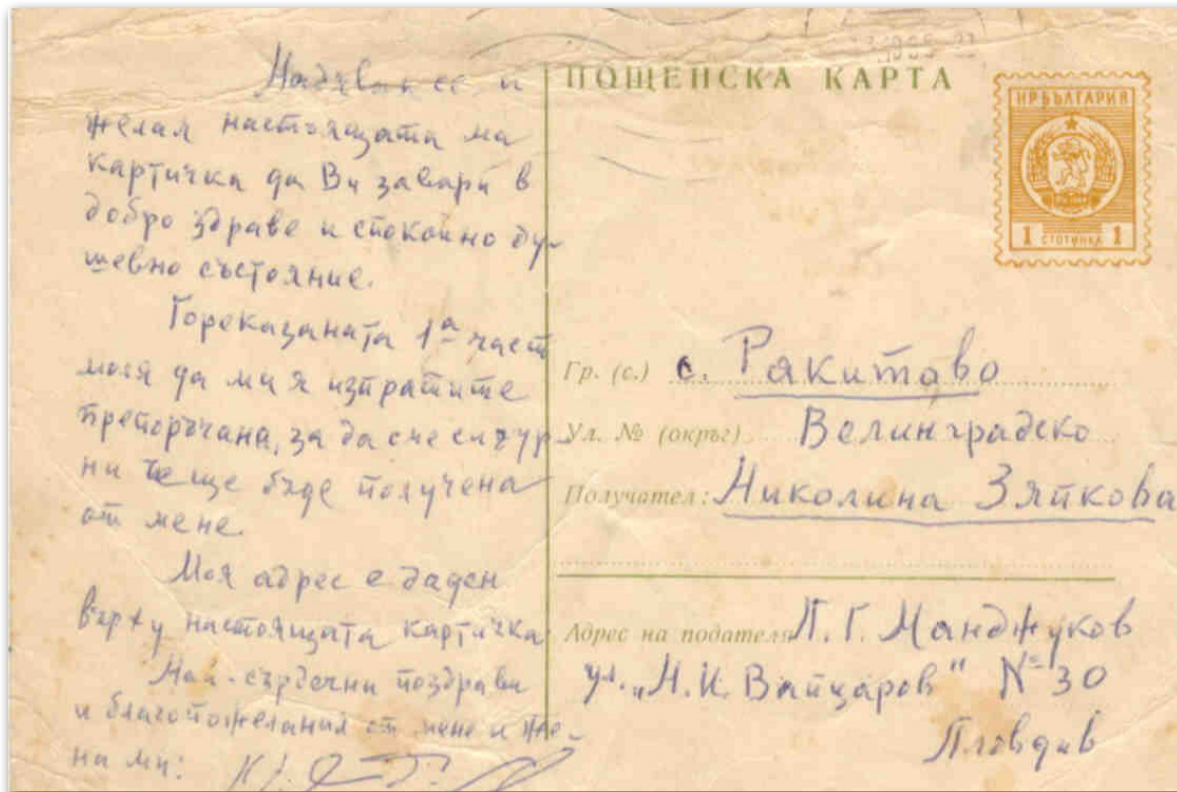 Надявам се и
желая настоящата ми
картичка да Ви завари в
добро здраве и спокойно ду-
шевно състояние.
Гореказаната 1ª част
моля да ми я изпратите
препоръчана, за да сме сигур-
ни че ще бъде получена
от мене.
Моя адрес е даден
върху настоящата картичка
Най-сърдечни поздрави
и благопожелания от мене и же-
на ми:
ПОЩЕНСКА КАРТА
НР БЪЛГАРИЯ
1 СТОТИНКА 1
Гр. (с.) с. Ракитово
Ул. № (окръг) Велинградско
Получател: Николина Зяпкова
Адрес на подателя П. Г. Манджуков
ул. „Н. И. Вапцаров" № 30
Пловдив